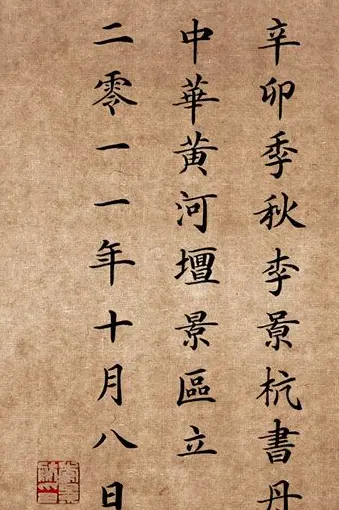 辛卯季秋李景杭書丹
中華黄河壇景區立
二零一一年十月八日